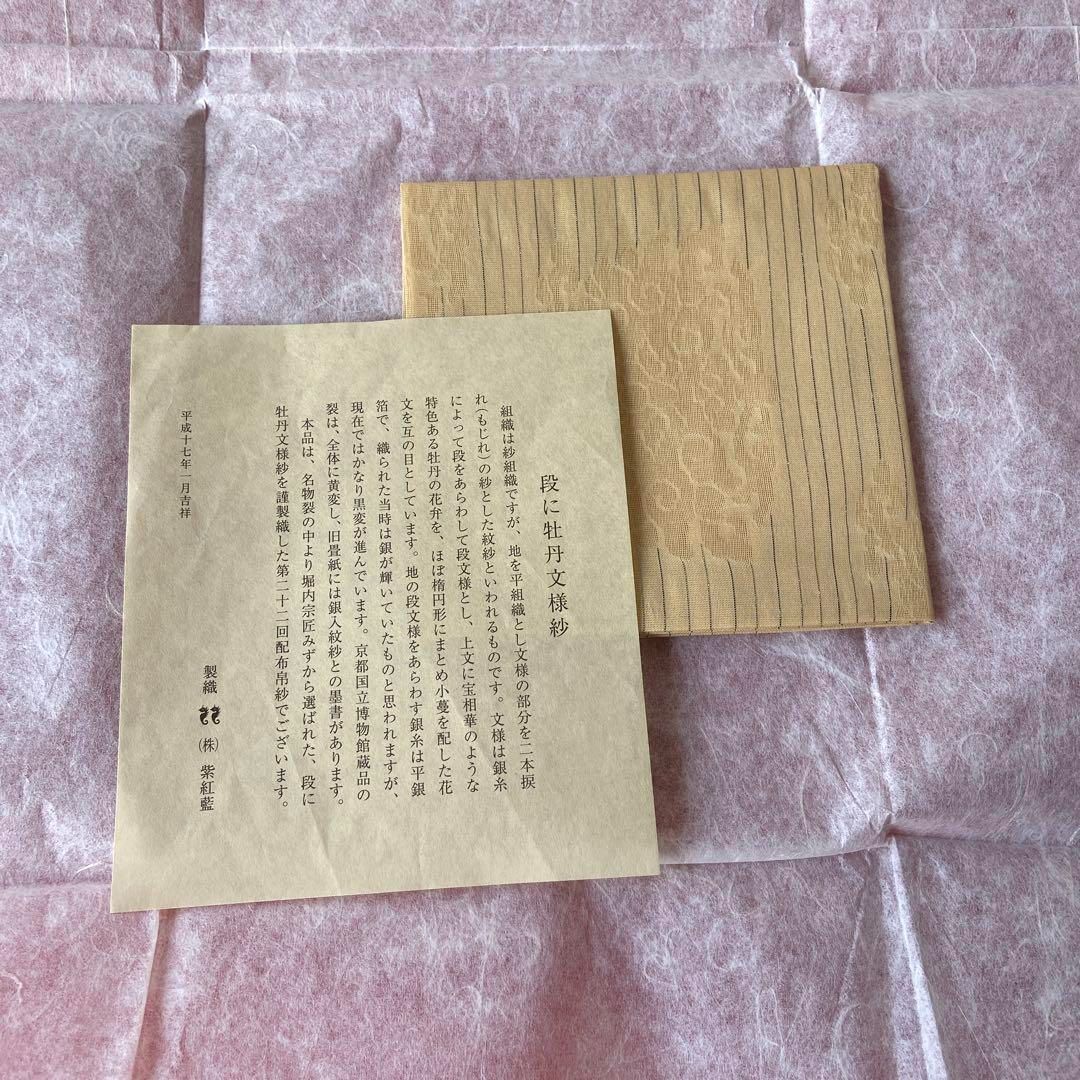 段に牡丹文様紗
組織は紗組織ですが、地を平組織とし文様の部分を二本捩
れ(もじれ)の紗とした紋紗といわれるものです。文様は銀糸
によって段をあらわして段文様とし、上文に宝相華のような
特色ある牡丹の花弁を、ほぼ楕円形にまとめ小蔓を配した花
文を互の目としています。地の段文様をあらわす銀糸は平銀
箔で、織られた当時は銀が輝いていたものと思われますが、
現在ではかなり黒変が進んでいます。京都国立博物館蔵品の
裂は、全体に黄変し、旧畳紙には銀入紋紗との墨書があります。
本品は、名物裂の中より堀内宗匠みずから選ばれた、段に
牡丹文様紗を謹製織した第二十二回配布帛紗でございます。
製織 (株) 紫紅藍
平成十七年一月吉祥